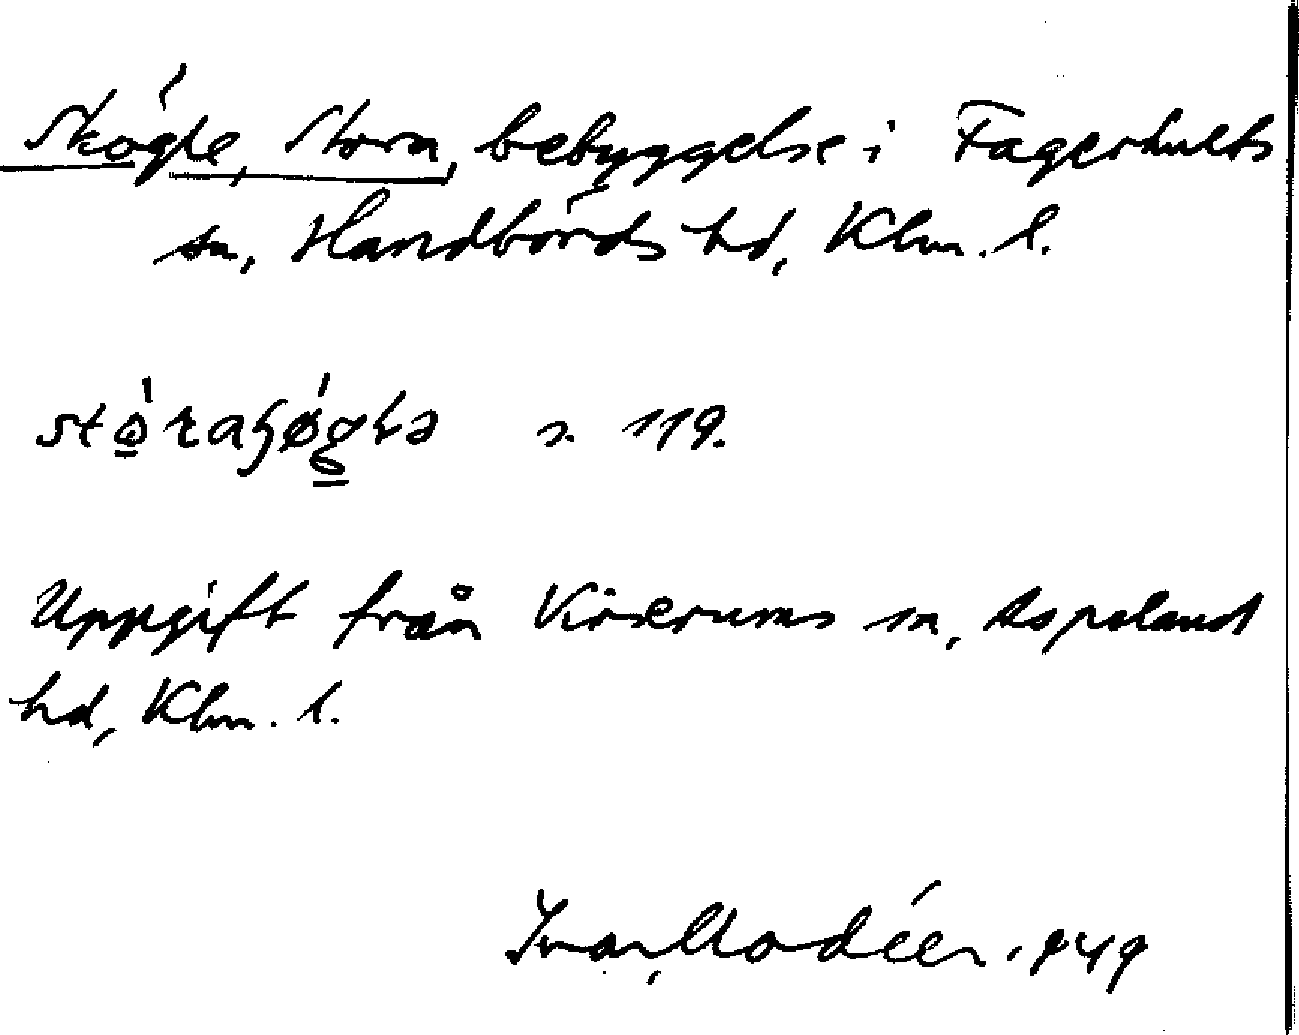 Skögle, Stora, bebyggelse i Fagerhults
sn, Handbörds hd, Klm. l.
s. 119.
Uppgift från Virserums sn, Aspeland
hd, Klm. l.
Ivar Modéer 1949